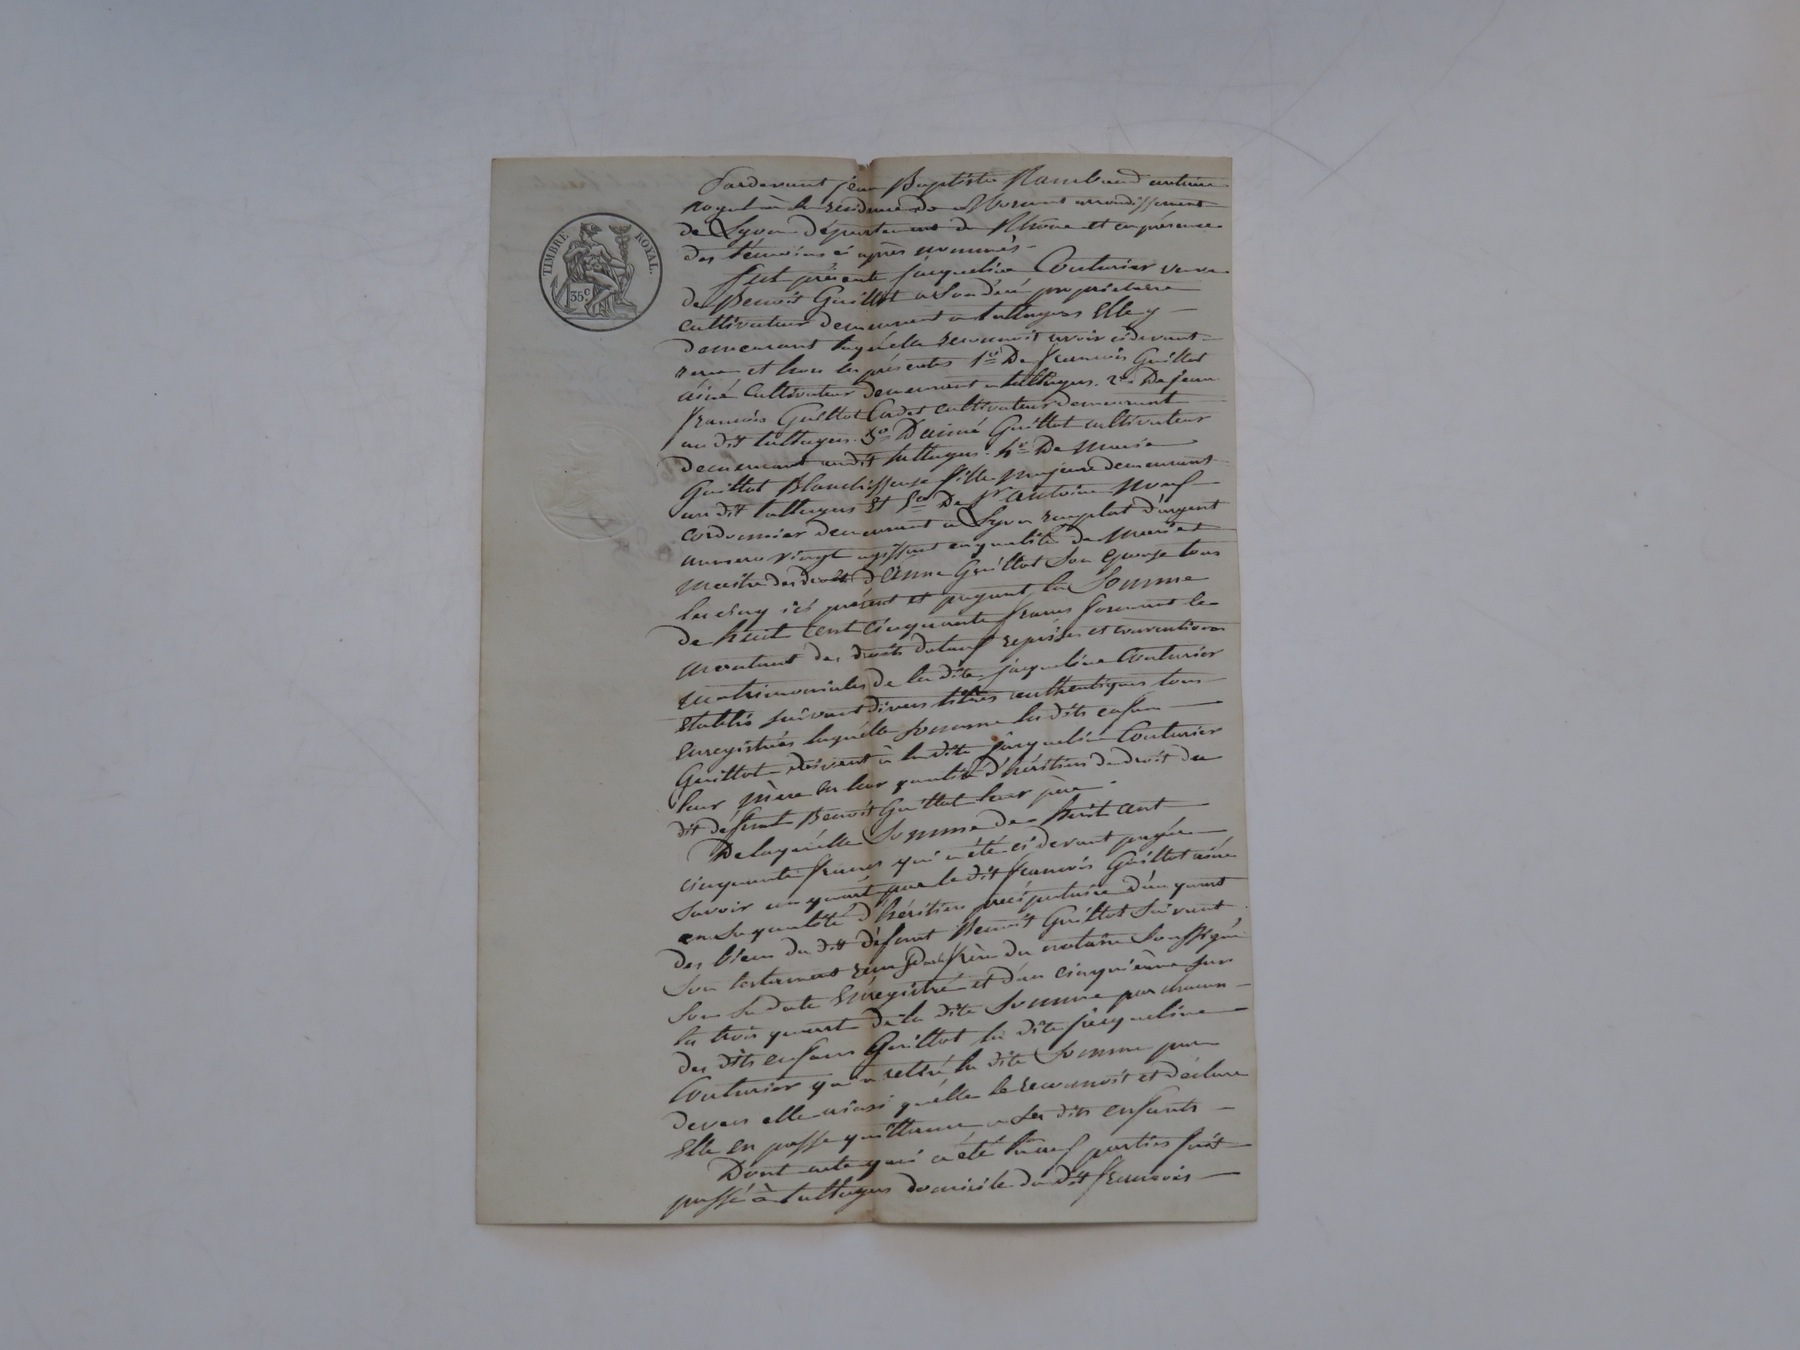 TIMBRE ROYAL.
35c
Pardevant jean Baptiste Rambaud notaire
royal à la residence de arrondissement
de Lyon Département du Rhône et en présence
des témoins ci après nommés
fut présente jacqueline Couturier veuve
de Benoit Guillot propriétaire
cultivateur demeurant a talluyers Elle y
demeurant laquelle reconnoit avoir cidevant
recu et hors les présentes 1o De francois Guillot
ainé Cultivateur demeurant a talluyers. 2o De jean
francois Guillot Cadet cultivateur demeurant
au dit talluyers. 3o D'aimé Guillot cultivateur
demeurant audit talluyers. 4o De Marie
Guillot Blanchisseuse fille majeure demeurant
au dit talluyers Et 5o De sr antoine
cordonnier demeurant a Lyon d'argent
numero vingt agissant en qualité de Mari et
Maitre des droits d'anne Guillot Son epouse tous
les cinq ici présent et payant la Somme
de huit cent cinquante francs formant le
montant des droits dotaux reprises et conventions
matrimoniales de la dite jacqueline Couturier
etablis suivant divers titres authentiques tous
enregistrés laquelle Somme les dits enfans
Guillot doivent à la dite jacqueline Couturier
leur Mère en leur qualité d'héritiers de droit du
dit défunt Benoit Guillot leur père
De laquelle Somme de huit cent
cinquante francs qui a été ci devant payée
Savoir un quart par le dit francois Guillot ainé
en Sa qualité d'héritier préciputaire d'un quart
des biens du dit défunt Benoit Guillot Suivant
Son testament recu du notaire Soussigné
Sous Sa date Enregistré et d'un cinquième sur
les trois quart de la dite Somme par chacun
des dits enfans Guillot la dite jacqueline
Couturier qui a retiré la dite Somme par
devers elle ainsi qu'elle le reconnoit et déclare
Elle en passe quittance a Ses dits enfants
Dont acte qui a été aux parties fait
passé à talluyers domicile du dit francois